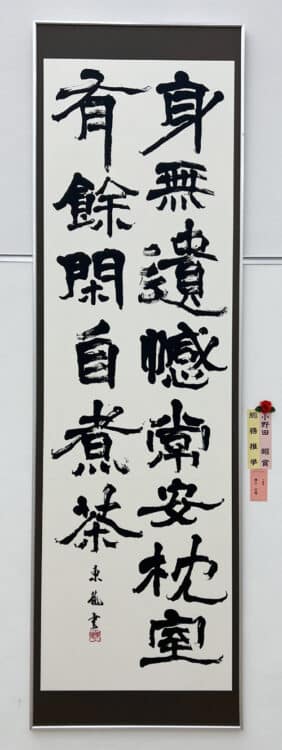 身無遺憾常安枕室
有餘閑自煮茶
東龍書
小野田 賞